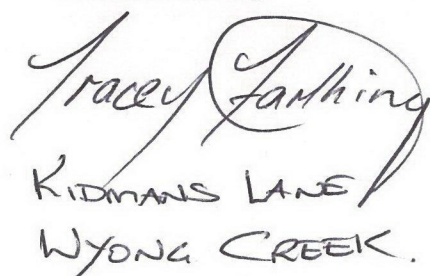 Tracey Farthing
KIDMANS LANE
WYONG CREEK.